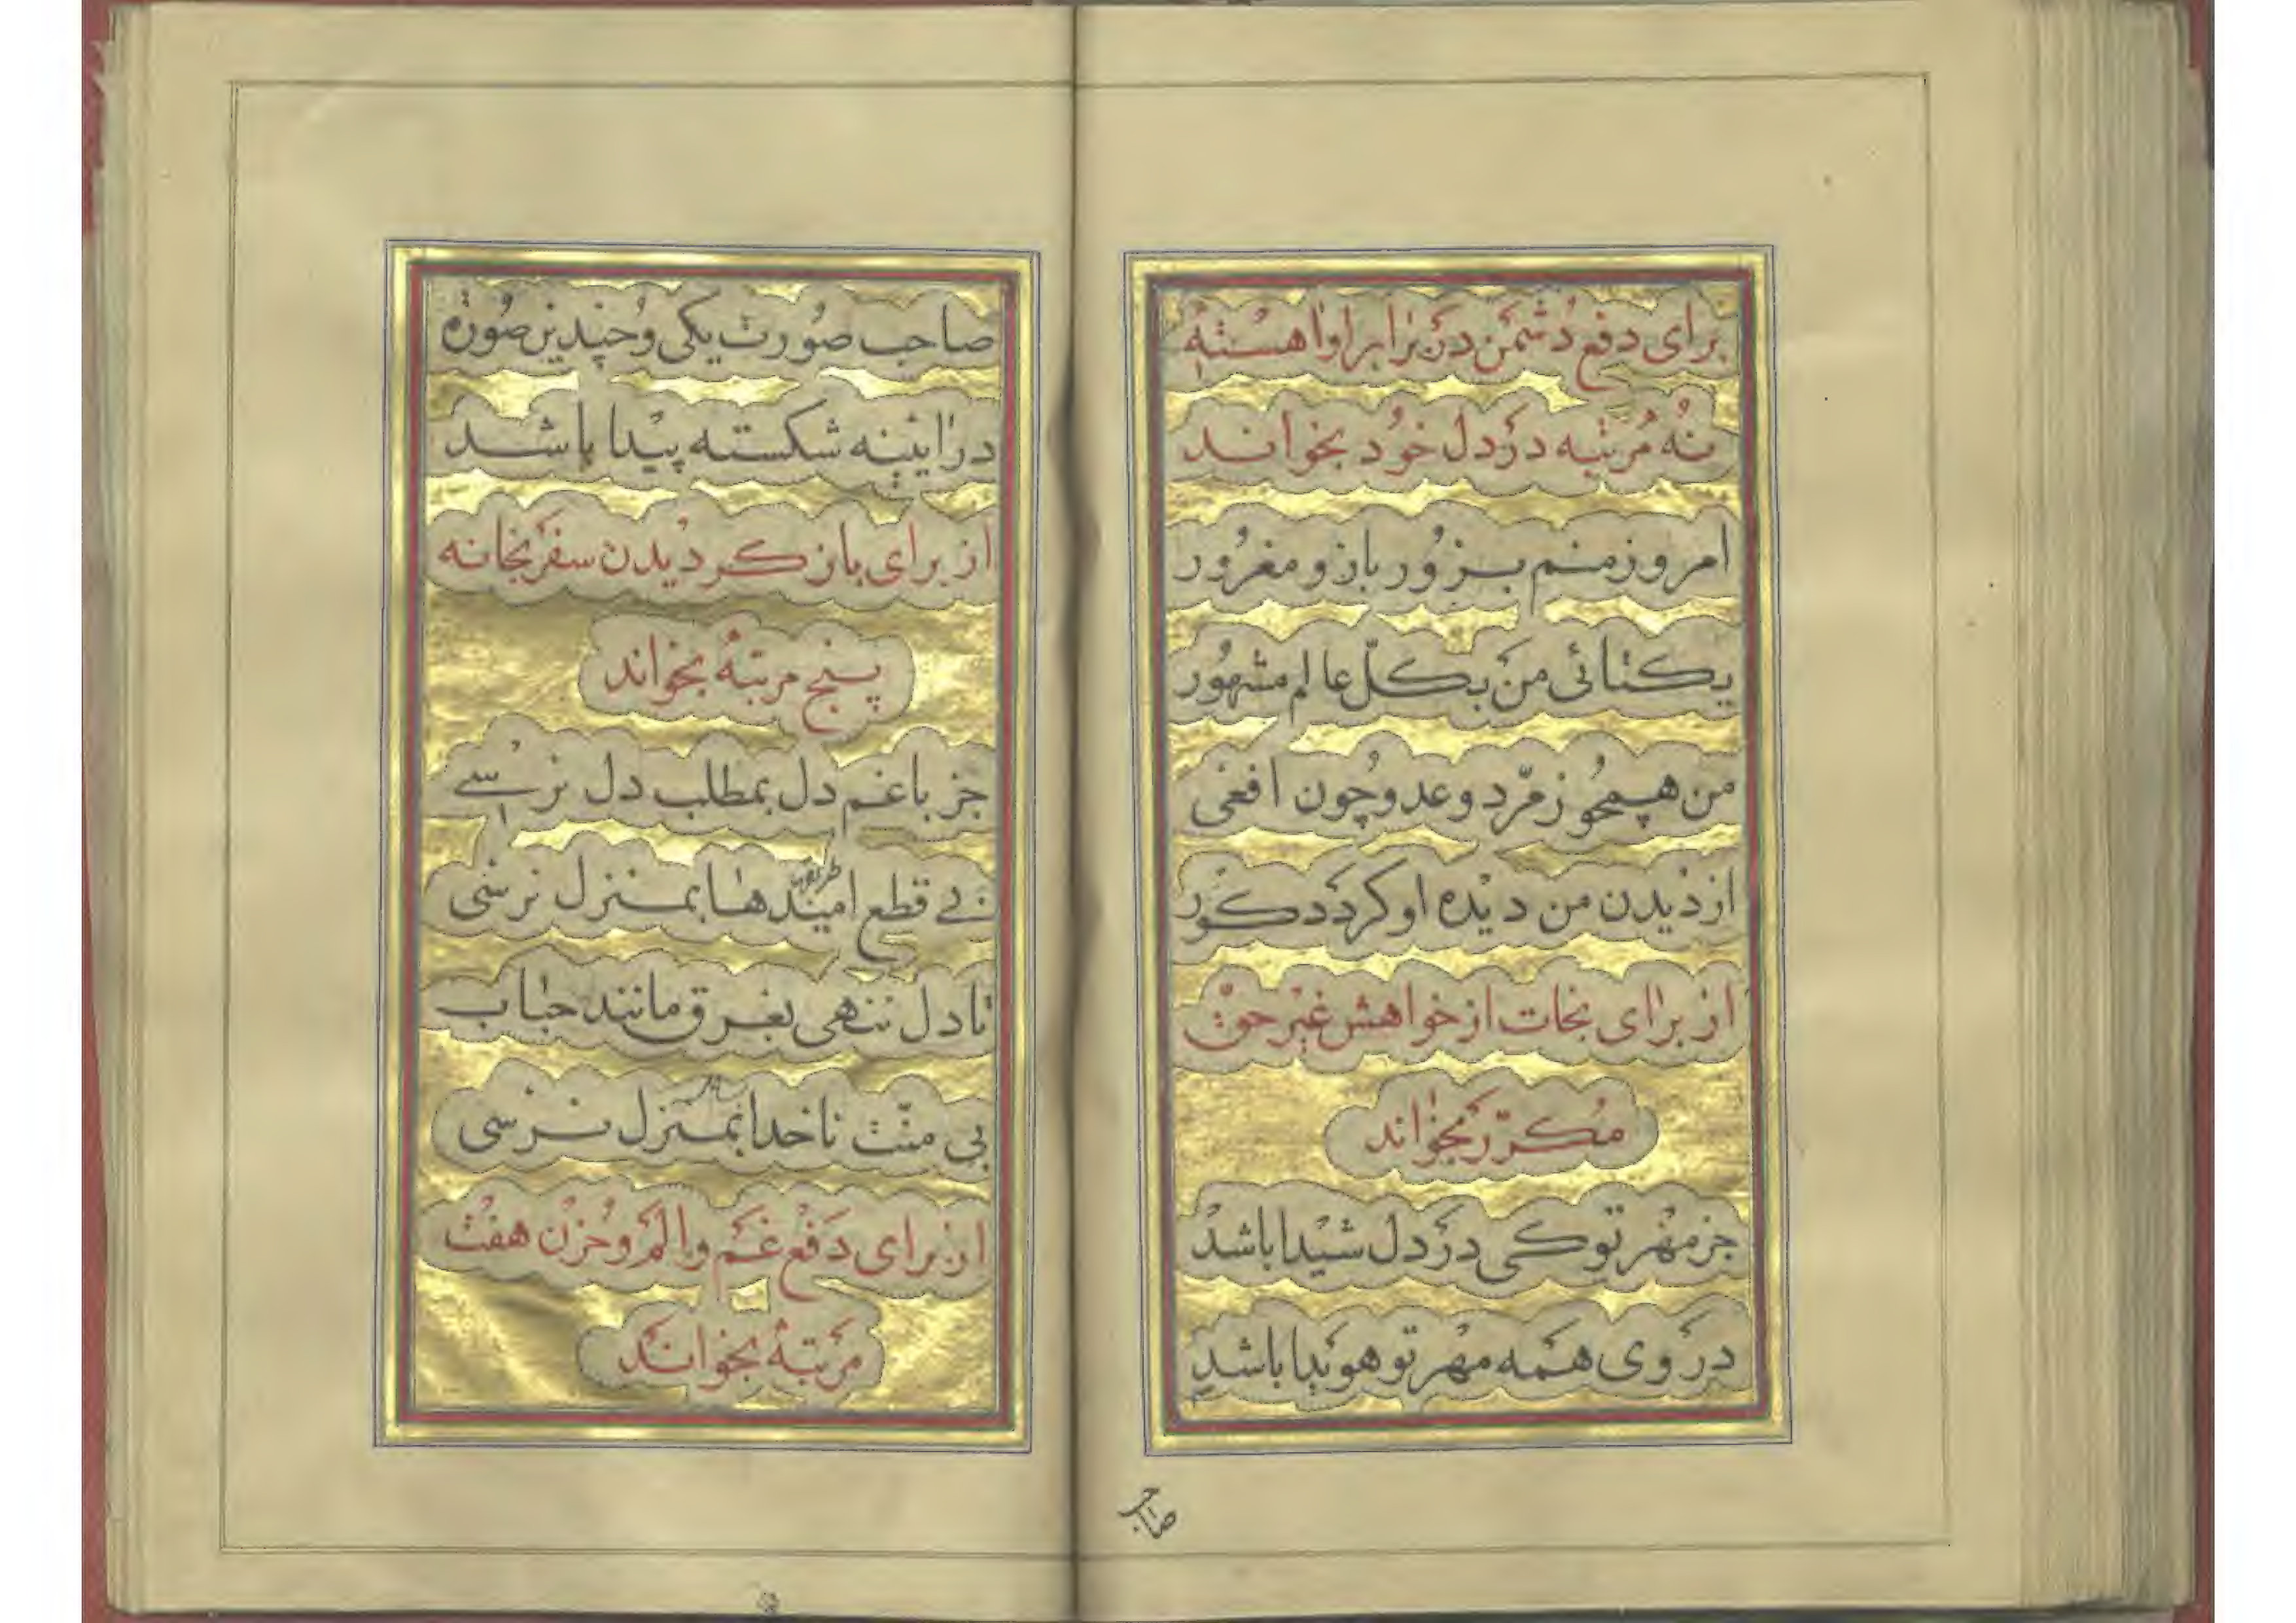 برای دفع دشمن در برابر او اهسته
نه مرتبه در دل خود بخواند
امروز منم بزور بازو مغرور
یکتائی من بکلّ عالم مشهور
من همچو زمرّد و عدو چون افعی
از دیدن من دیده او کردد کور
از برای نجات از خواهش غیر حق
مکرّر بخواند
جز مهر تو کی در دل شیدا باشد
در روی همه مهر تو هویدا باشد
صاحب
صاحب صورت یکی و چندین صورة
در ایینه شکسته پیدا باشد
از برای باز کردیدن سفر بخانه
پنج مرتبه بخواند
جز با غم دل بمطلب دل نرسی
بی قطع امیدها بمنزل نرسی
طریق
تا دل ننهی بغرق مانند حباب
بی منّت ناخدا بمنزل نرسی
بساحل
از برای دفع غم و الم و حزن هفت
مرتبه بخواند